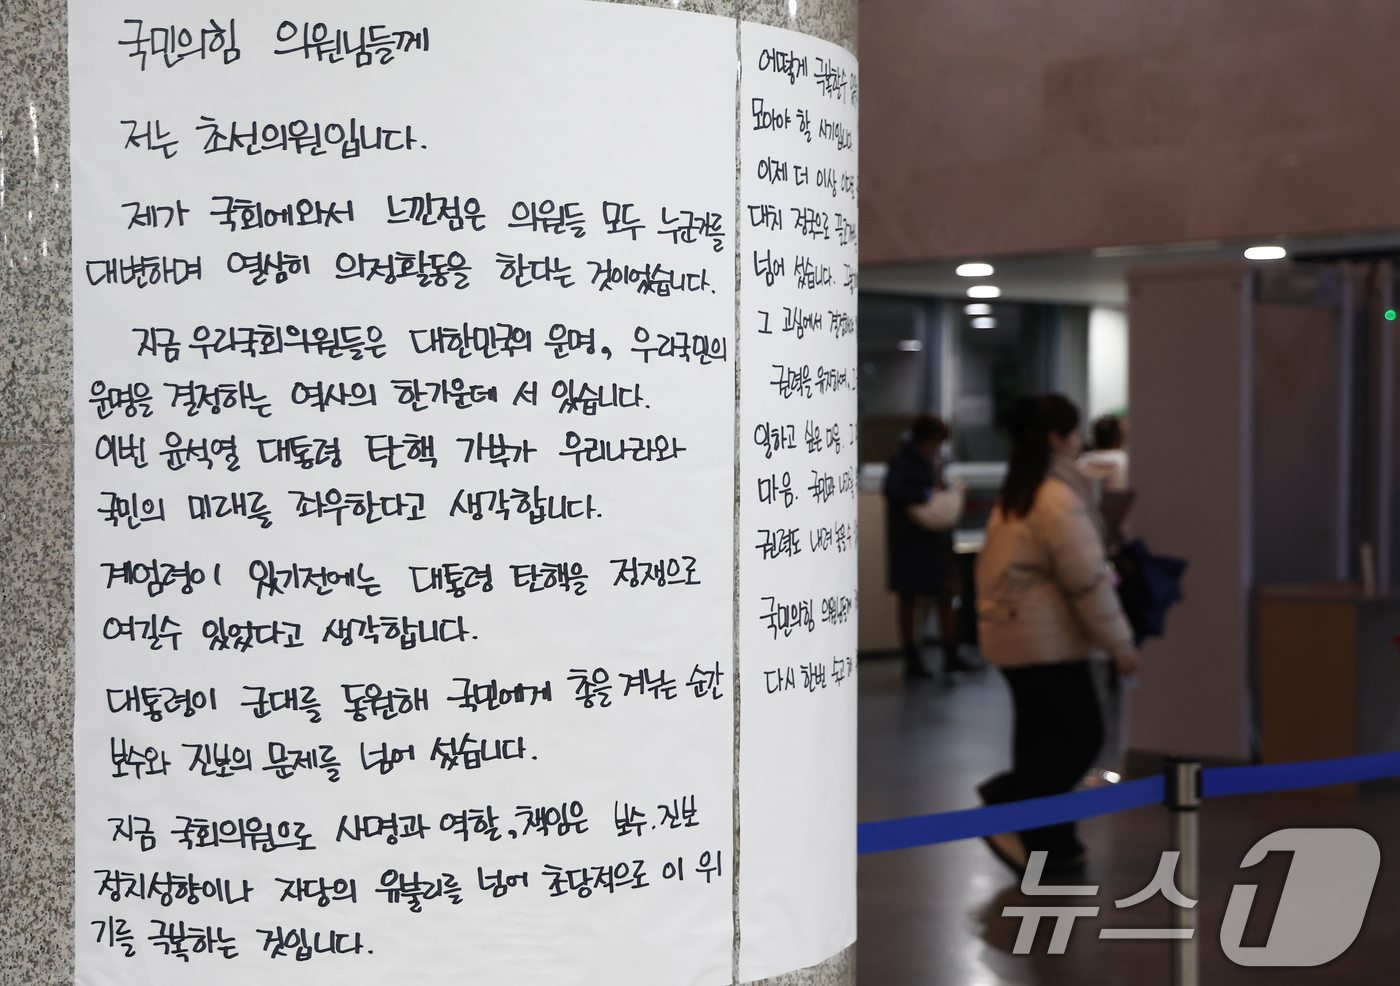 국민의힘 의원님들께
저는 초선의원입니다.
제가 국회에와서 느낀점은 의원들 모두 누군가를
대변하며 열심히 의정활동을 한다는 것이었습니다.
지금 우리국회의원들은 대한민국의 운명, 우리국민의
운명을 결정하는 역사의 한가운데 서 있습니다.
이번 윤석열 대통령 탄핵 가부가 우리나라와
국민의 미래를 좌우한다고 생각합니다.
계엄령이 있기전에는 대통령 탄핵을 정쟁으로
여길수 있었다고 생각합니다.
대통령이 군대를 동원해 국민에게 총을 겨누는 순간
보수와 진보의 문제를 넘어 섰습니다.
지금 국회의원으로 사명과 역할, 책임은 보수.진보
정치성향이나 자당의 유불리를 넘어 초당적으로 이 위
기를 극복하는 것입니다.
어떻게 극복할수
모아야 할 시기입니다.
이제 더 이상
대치 정국으로
넘어 섰습니다.
그 고심에서
권력을 유지하여,
일하고 싶은 마음.
마음. 국민과
권력도 내려놓을수
국민의힘 의원님들께
다시 한번
뉴스1